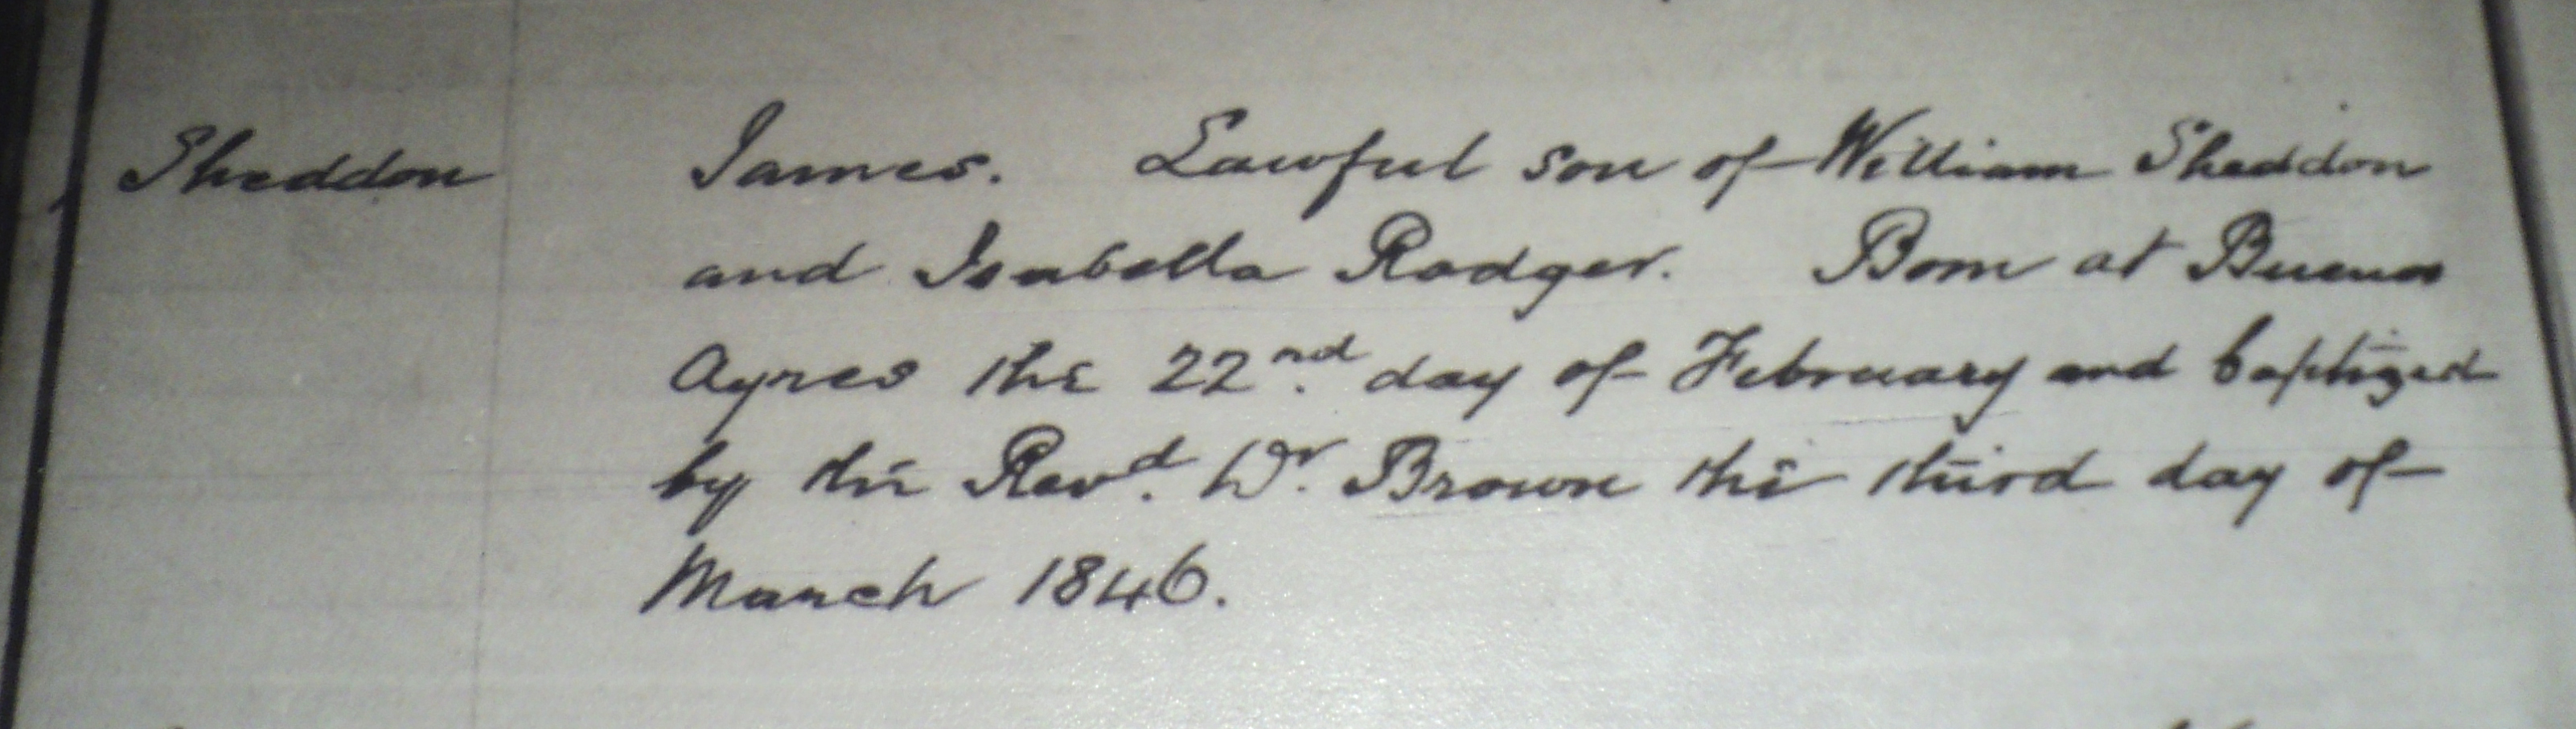 Sheddon James. Lawful son of William Sheddon
and Isabella Rodger. Born at Buenos
Ayres the 22nd. day of February and baptized
by the Revd. Dr. Brown the third day of
March 1846.